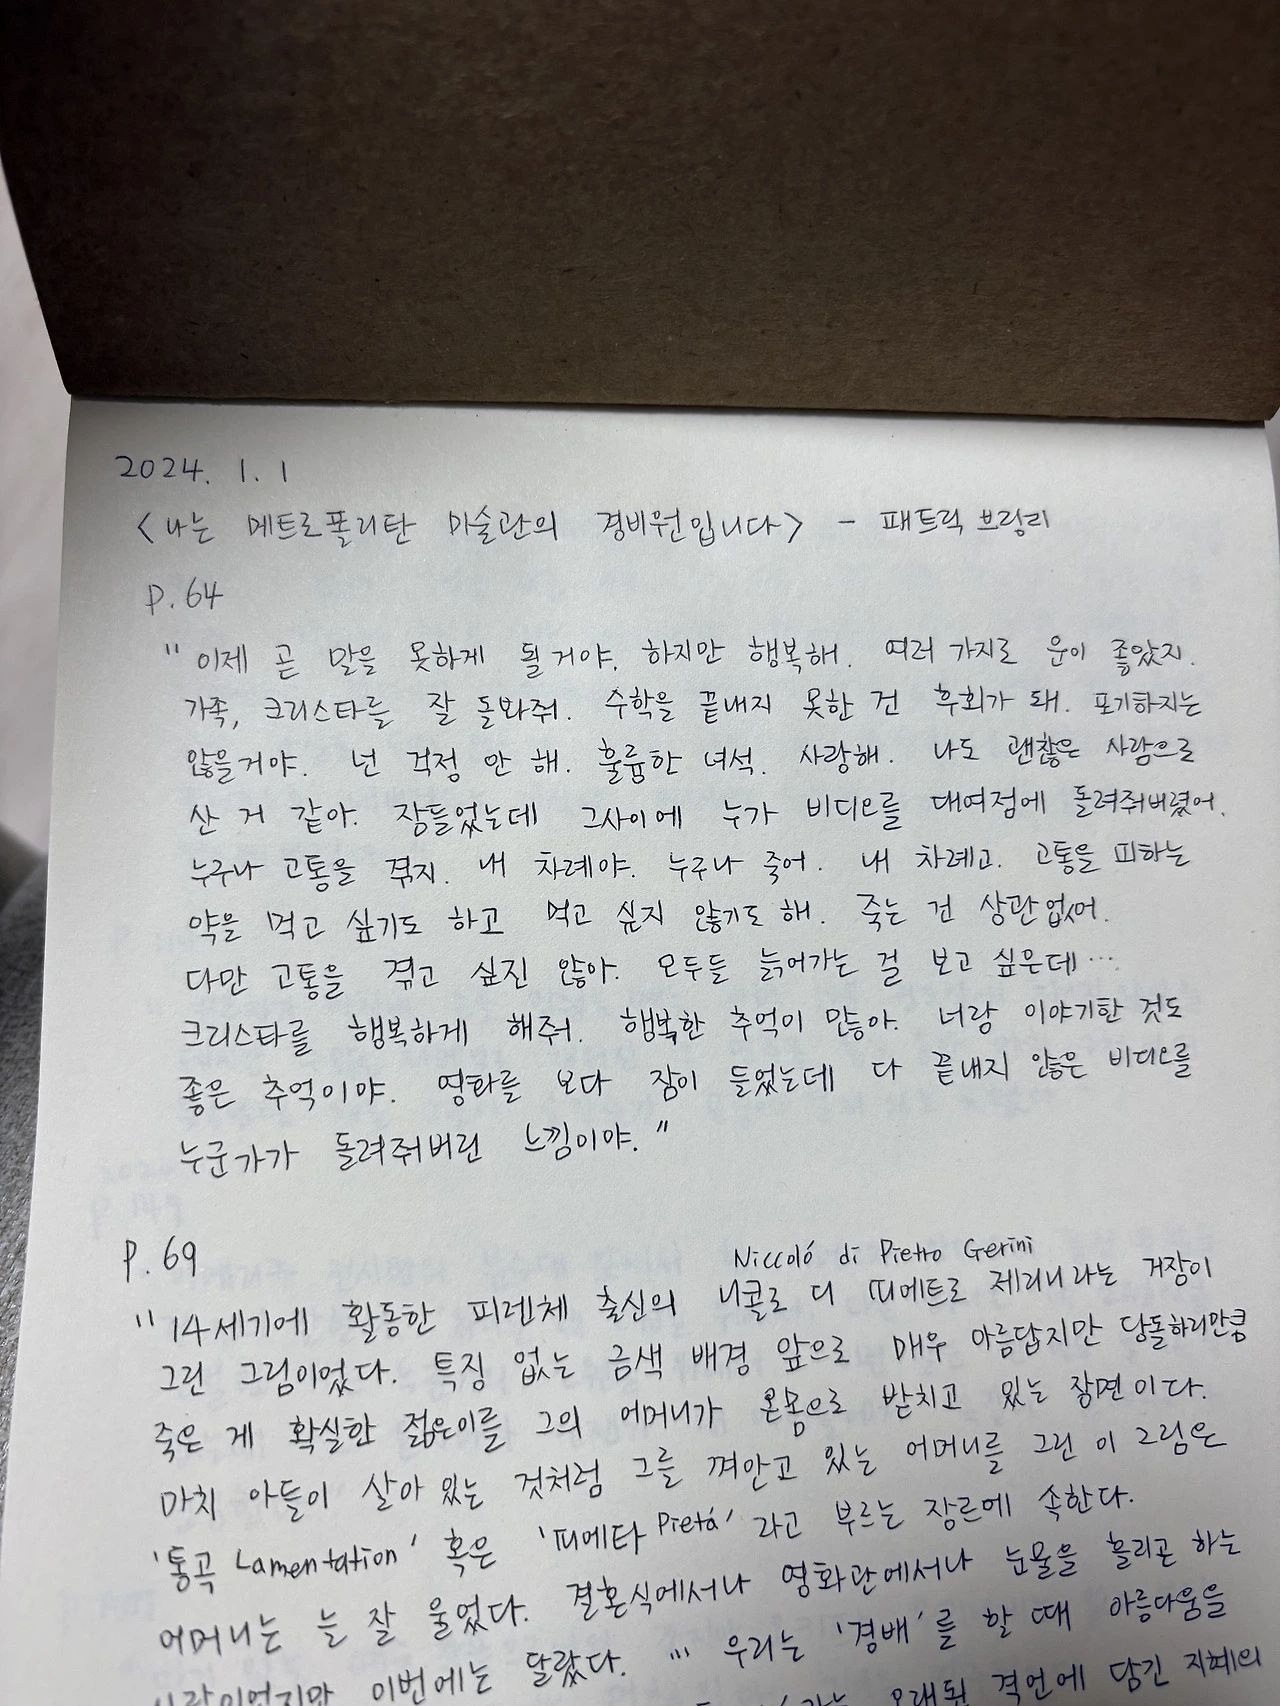 2024. 1. 1
<나는 메트로폴리탄 미술관의 경비원입니다> - 패트릭 브링리
P. 64
"이제 곧 말을 못하게 될거야. 하지만 행복해. 여러 가지로 운이 좋았지.
가족, 크리스타를 잘 돌봐줘. 수학을 끝내지 못한 건 후회가 돼. 포기하지는
않을거야. 넌 걱정 안 해. 훌륭한 녀석. 사랑해. 나도 괜찮은 사람으로
산 거 같아. 잠들었는데 그사이에 누가 비디오를 대여점에 돌려줘버렸어.
누구나 고통을 겪지. 내 차례야. 누구나 죽어. 내 차례고. 고통을 피하는
약을 먹고 싶기도 하고 먹고 싶지 않기도 해. 죽는 건 상관없어.
다만 고통을 겪고 싶진 않아. 모두들 늙어가는 걸 보고 싶은데...
크리스타를 행복하게 해줘. 행복한 추억이 많아. 너랑 이야기한 것도
좋은 추억이야. 영화를 보다 잠이 들었는데 다 끝내지 않은 비디오를
누군가가 돌려줘버린 느낌이야."
P. 69
Niccoló di Pietro Gerini
"14세기에 활동한 피렌체 출신의 니콜로 디 피에트로 제리니라는 거장이
그린 그림이었다. 특징 없는 금색 배경 앞으로 매우 아름답지만 당돌하리만큼
죽은 게 확실한 젊은이를 그의 어머니가 온몸으로 받치고 있는 장면이다.
마치 아들이 살아 있는 것처럼 그를 껴안고 있는 어머니를 그린 이 그림은
'통곡 Lamentation' 혹은 '피에타 Pietá' 라고 부르는 장르에 속한다.
어머니는 늘 잘 울었다. 결혼식에서나 영화관에서나 눈물을 흘리곤 하는
사람이었지만 이번에는 달랐다. ... 우리는 '경배'를 할 때 아름다움을
오래된 격언에 담긴 지혜의